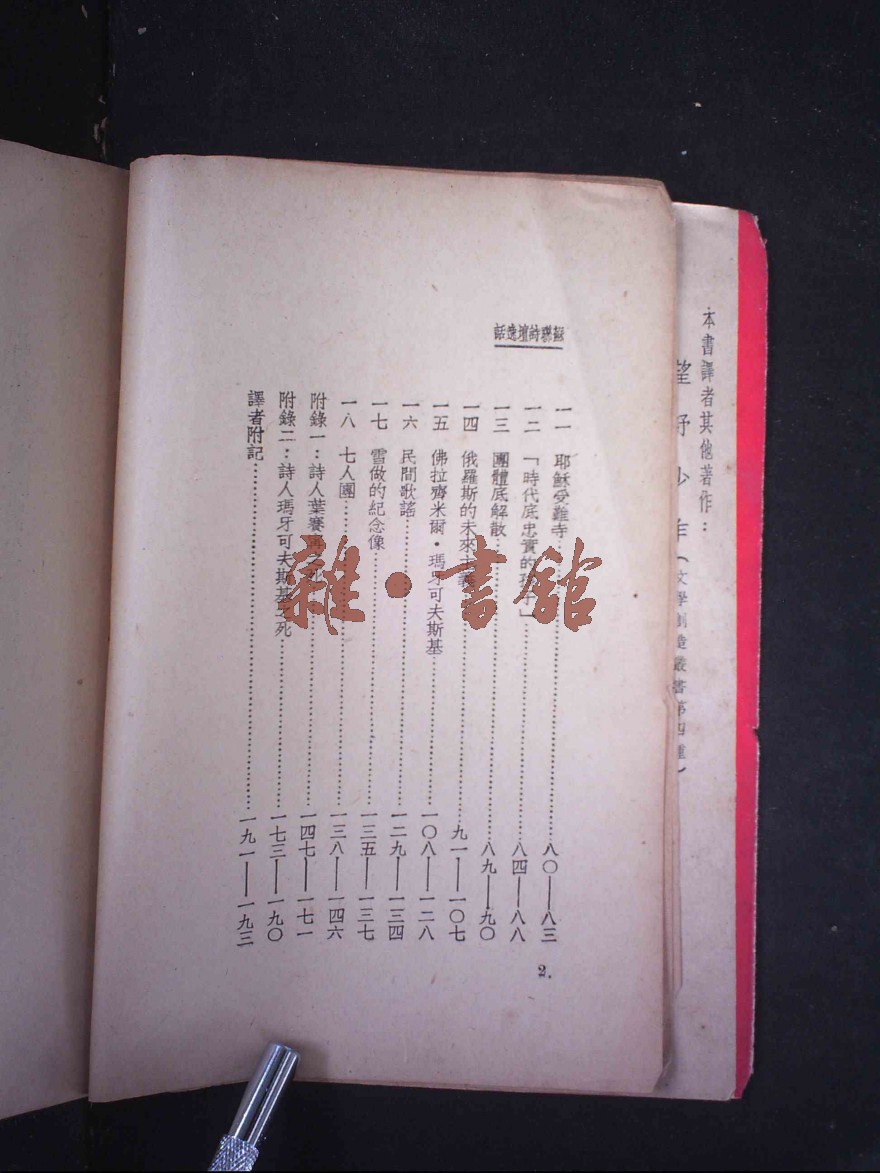 本書譯者其他著作：
望舒少作（文學創造叢書第四種）
蘇聯詩壇逸話
一一 耶穌受難寺……八〇——八三
一二 「時代底忠實的孩子」……八四——八八
一三 團體底解散……八九——九〇
一四 俄羅斯的未來主義……九一——一〇七
一五 佛拉齊米爾·瑪牙可夫斯基……一〇八——一二八
一六 民間歌謠……一二九——一三四
一七 雪做的紀念像……一三五——一三七
一八 七人團……一三八——一四六
附錄一：詩人葉賽寧之死……一四七——一七一
附錄二：詩人瑪牙可夫斯基之死……一七三——一九〇
譯者附記……一九一——一九三
2.
雜·書館